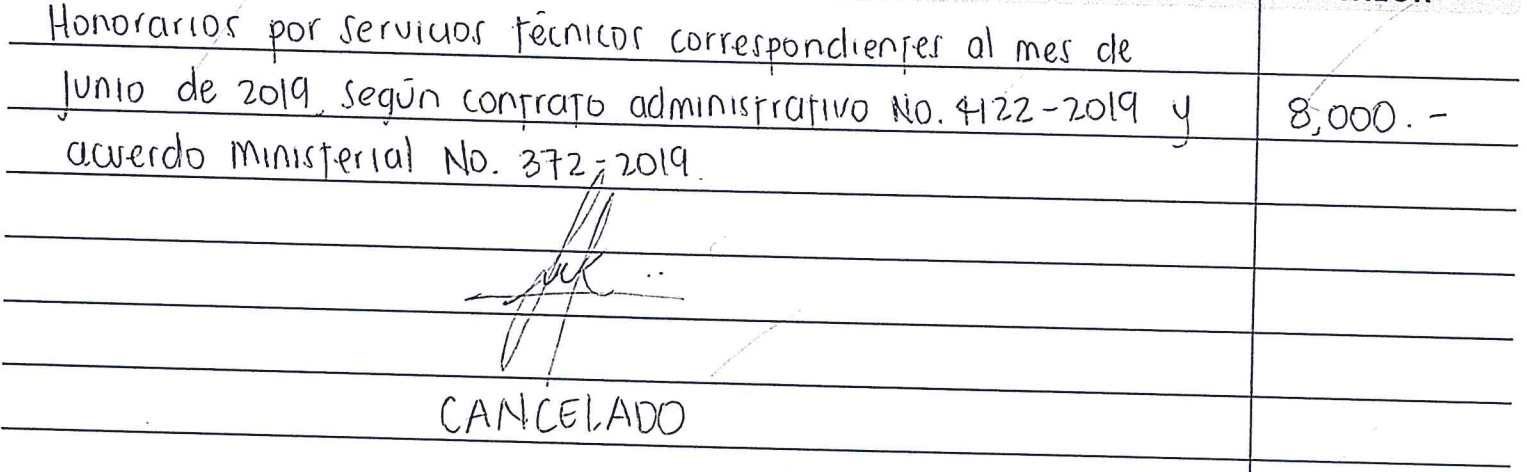 Honorarios por servicios técnicos correspondientes al mes de
Junio de 2019, según contrato administrativo No. 4122-2019 y 8,000.-
acuerdo ministerial No. 372-2019.
CANCELADO